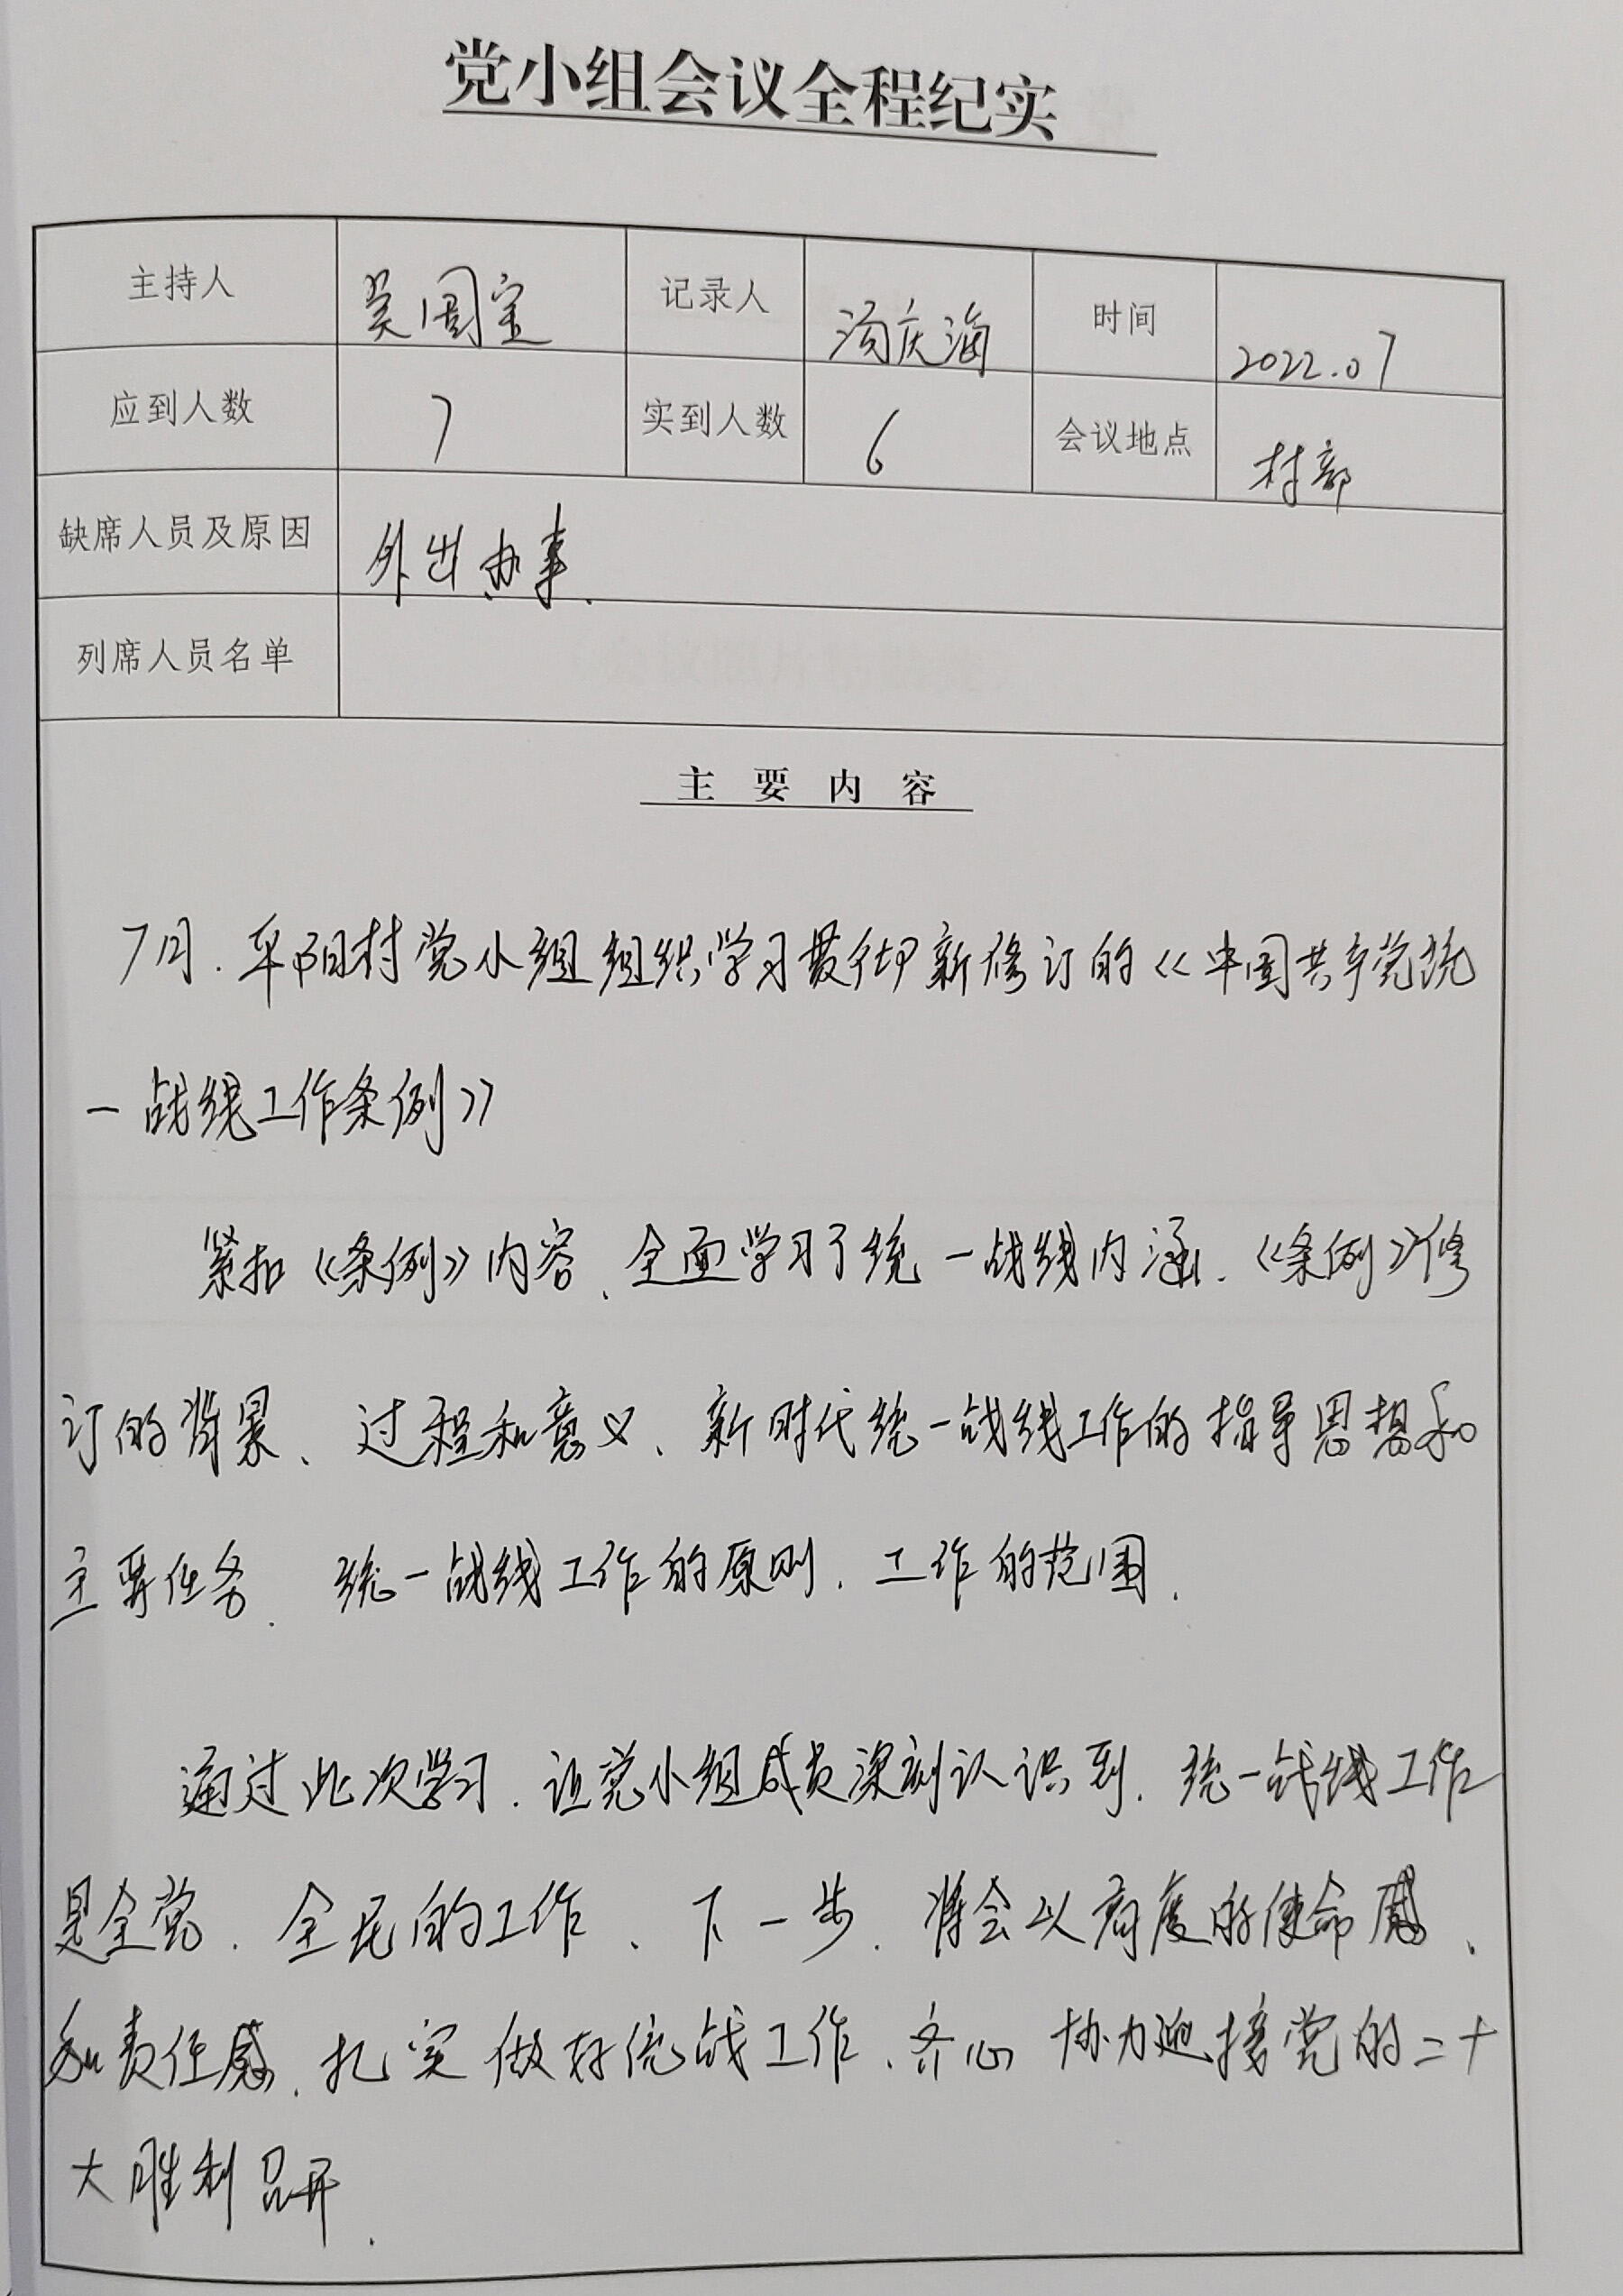 党小组会议全程纪实
主持人 吴国宝 记录人 汤庆海 时间 2022.07
应到人数 7 实到人数 6 会议地点 村部
缺席人员及原因 外出办事.
列席人员名单
主要内容
7月.平阳村党小组组织学习贯彻新修订的《中国共产党统
一战线工作条例》
紧扣《条例》内容、全面学习了统一战线内涵.《条例》修
订的背景、过程和意义、新时代统一战线工作的指导思想和
主要任务、统一战线工作的原则.工作的范围.
通过此次学习.让党小组成员深刻认识到.统一战线工作
是全党.全民的工作、下一步.将会以高度的使命感、
和责任感.扎实做好统战工作、齐心协力迎接党的二十
大胜利召开.